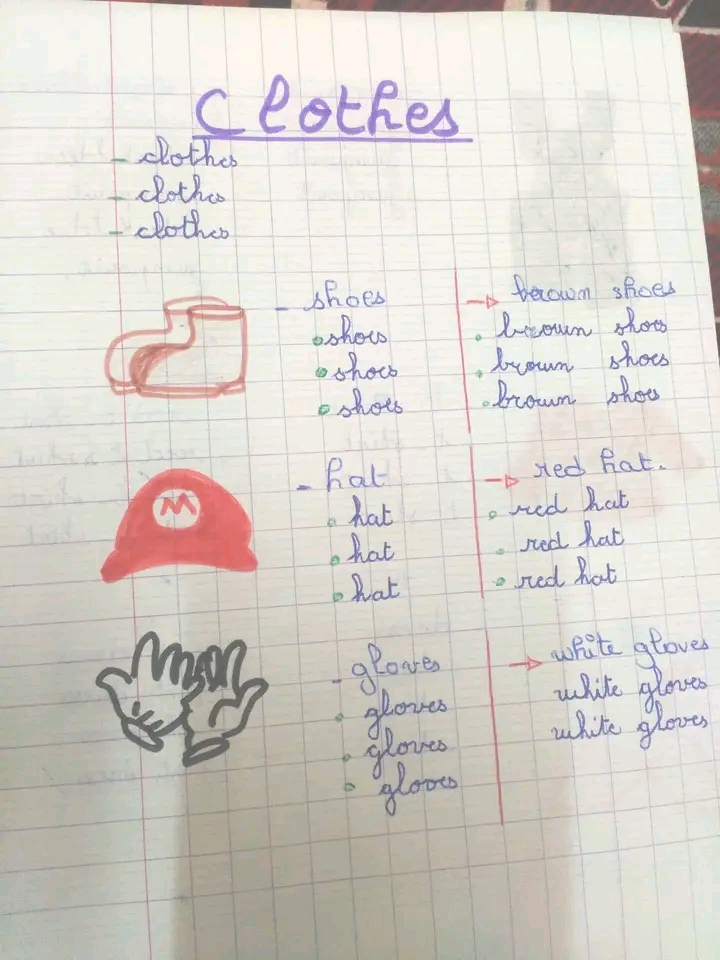 Clothes
- clothes
- clothes
- clothes
- shoes
shoes
shoes
shoes
→ brown shoes
brown shoes
brown shoes
brown shoes
M
- hat
hat
hat
hat
→ red hat.
red hat
red hat
red hat
- gloves
gloves
gloves
gloves
→ white gloves
white gloves
white gloves